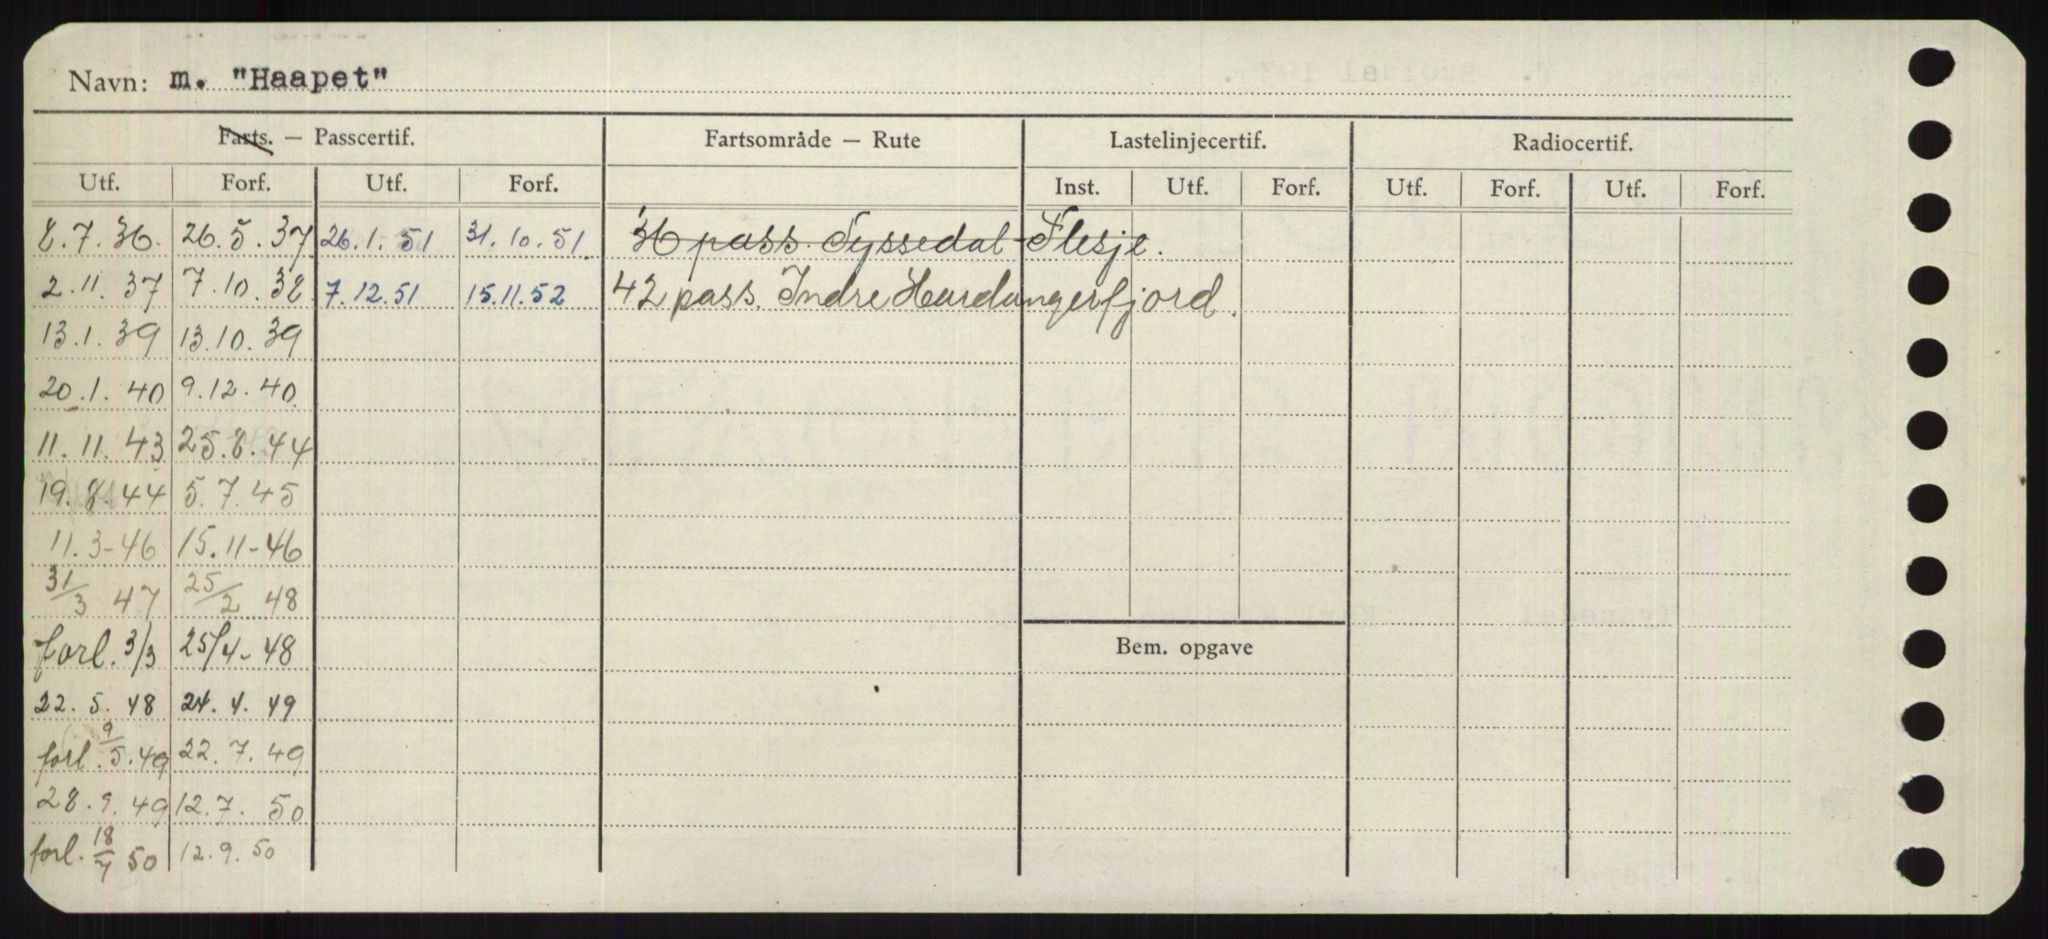 Navn: m. "Haapet"
Farts. — Passcertif. Fartsområde — Rute Lastelinjecertif. Radiocertif.
Utf. Forf. Utf. Forf. Inst. Utf. Forf. Utf. Forf. Utf. Forf.
8.7.36. 26.5.37 26.1.51 31.10.51 36 pass. Tyssedal-Flesje.
2.11.37 7.10.38 7.12.51 15.11.52 42 pass. Indre Hardangerfjord.
13.1.39 13.10.39
20.1.40 9.12.40
11.11.43 25.8.44
19.8.44 5.7.45
11.3-46 15.11-46
31/3 47 25/2 48
forl. 3/3 25/4-48
Bem. opgave
22.5.48 24.4.49
forl. 9/5.49 22.7.49
28.9.49 12.7.50
forl. 18/7 50 12.9.50